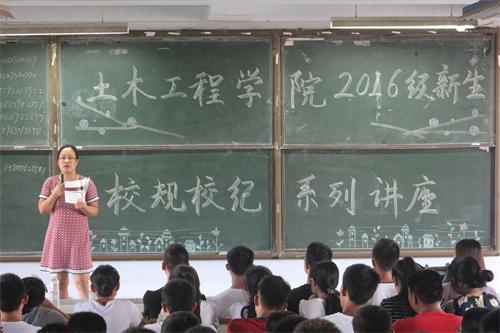 土木工程学院2016级新生
校规校纪系列讲座